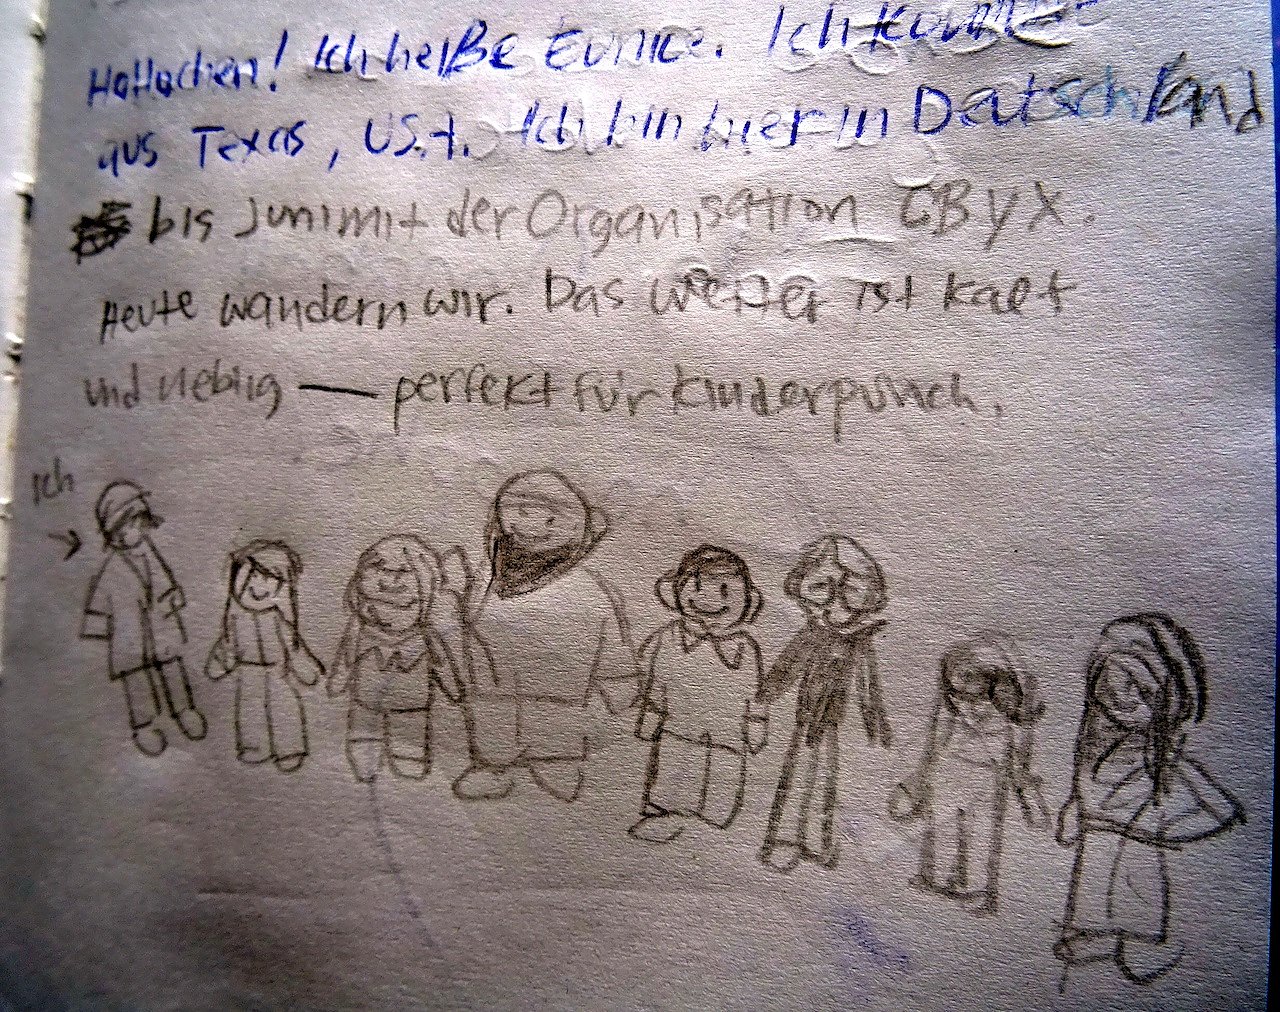 Hallöchen! Ich heiße Eunice. Ich komme
aus Texas, USA. Ich bin hier in Deutschland
bis Juni mit der Organisation CBYX.
Heute wandern wir. Das Wetter ist kalt
und neblig — perfekt für Kinderpunsch.
Ich